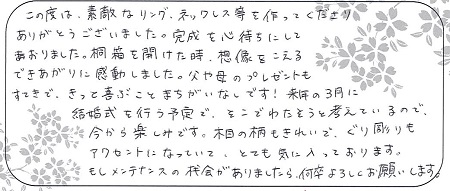 この度は、素敵なリング、ネックレス等を作ってくださり
ありがとうございました。完成を心待ちにして
おおりました。桐箱を開けた時、想像をこえる
できあがりに感動しました。父や母のプレゼントも
すてきで、きって喜ぶことまちがいなしです!来年の3月に
結婚式を行う予定で、そこでわたそうと考えているので、
今から楽しみです。木目の柄もきれいで、ぐり彫りも
アクセントになっていて、とても気に入っております。
もしメンテナンスの機会がありましたら、何卒よろしくお願いします。